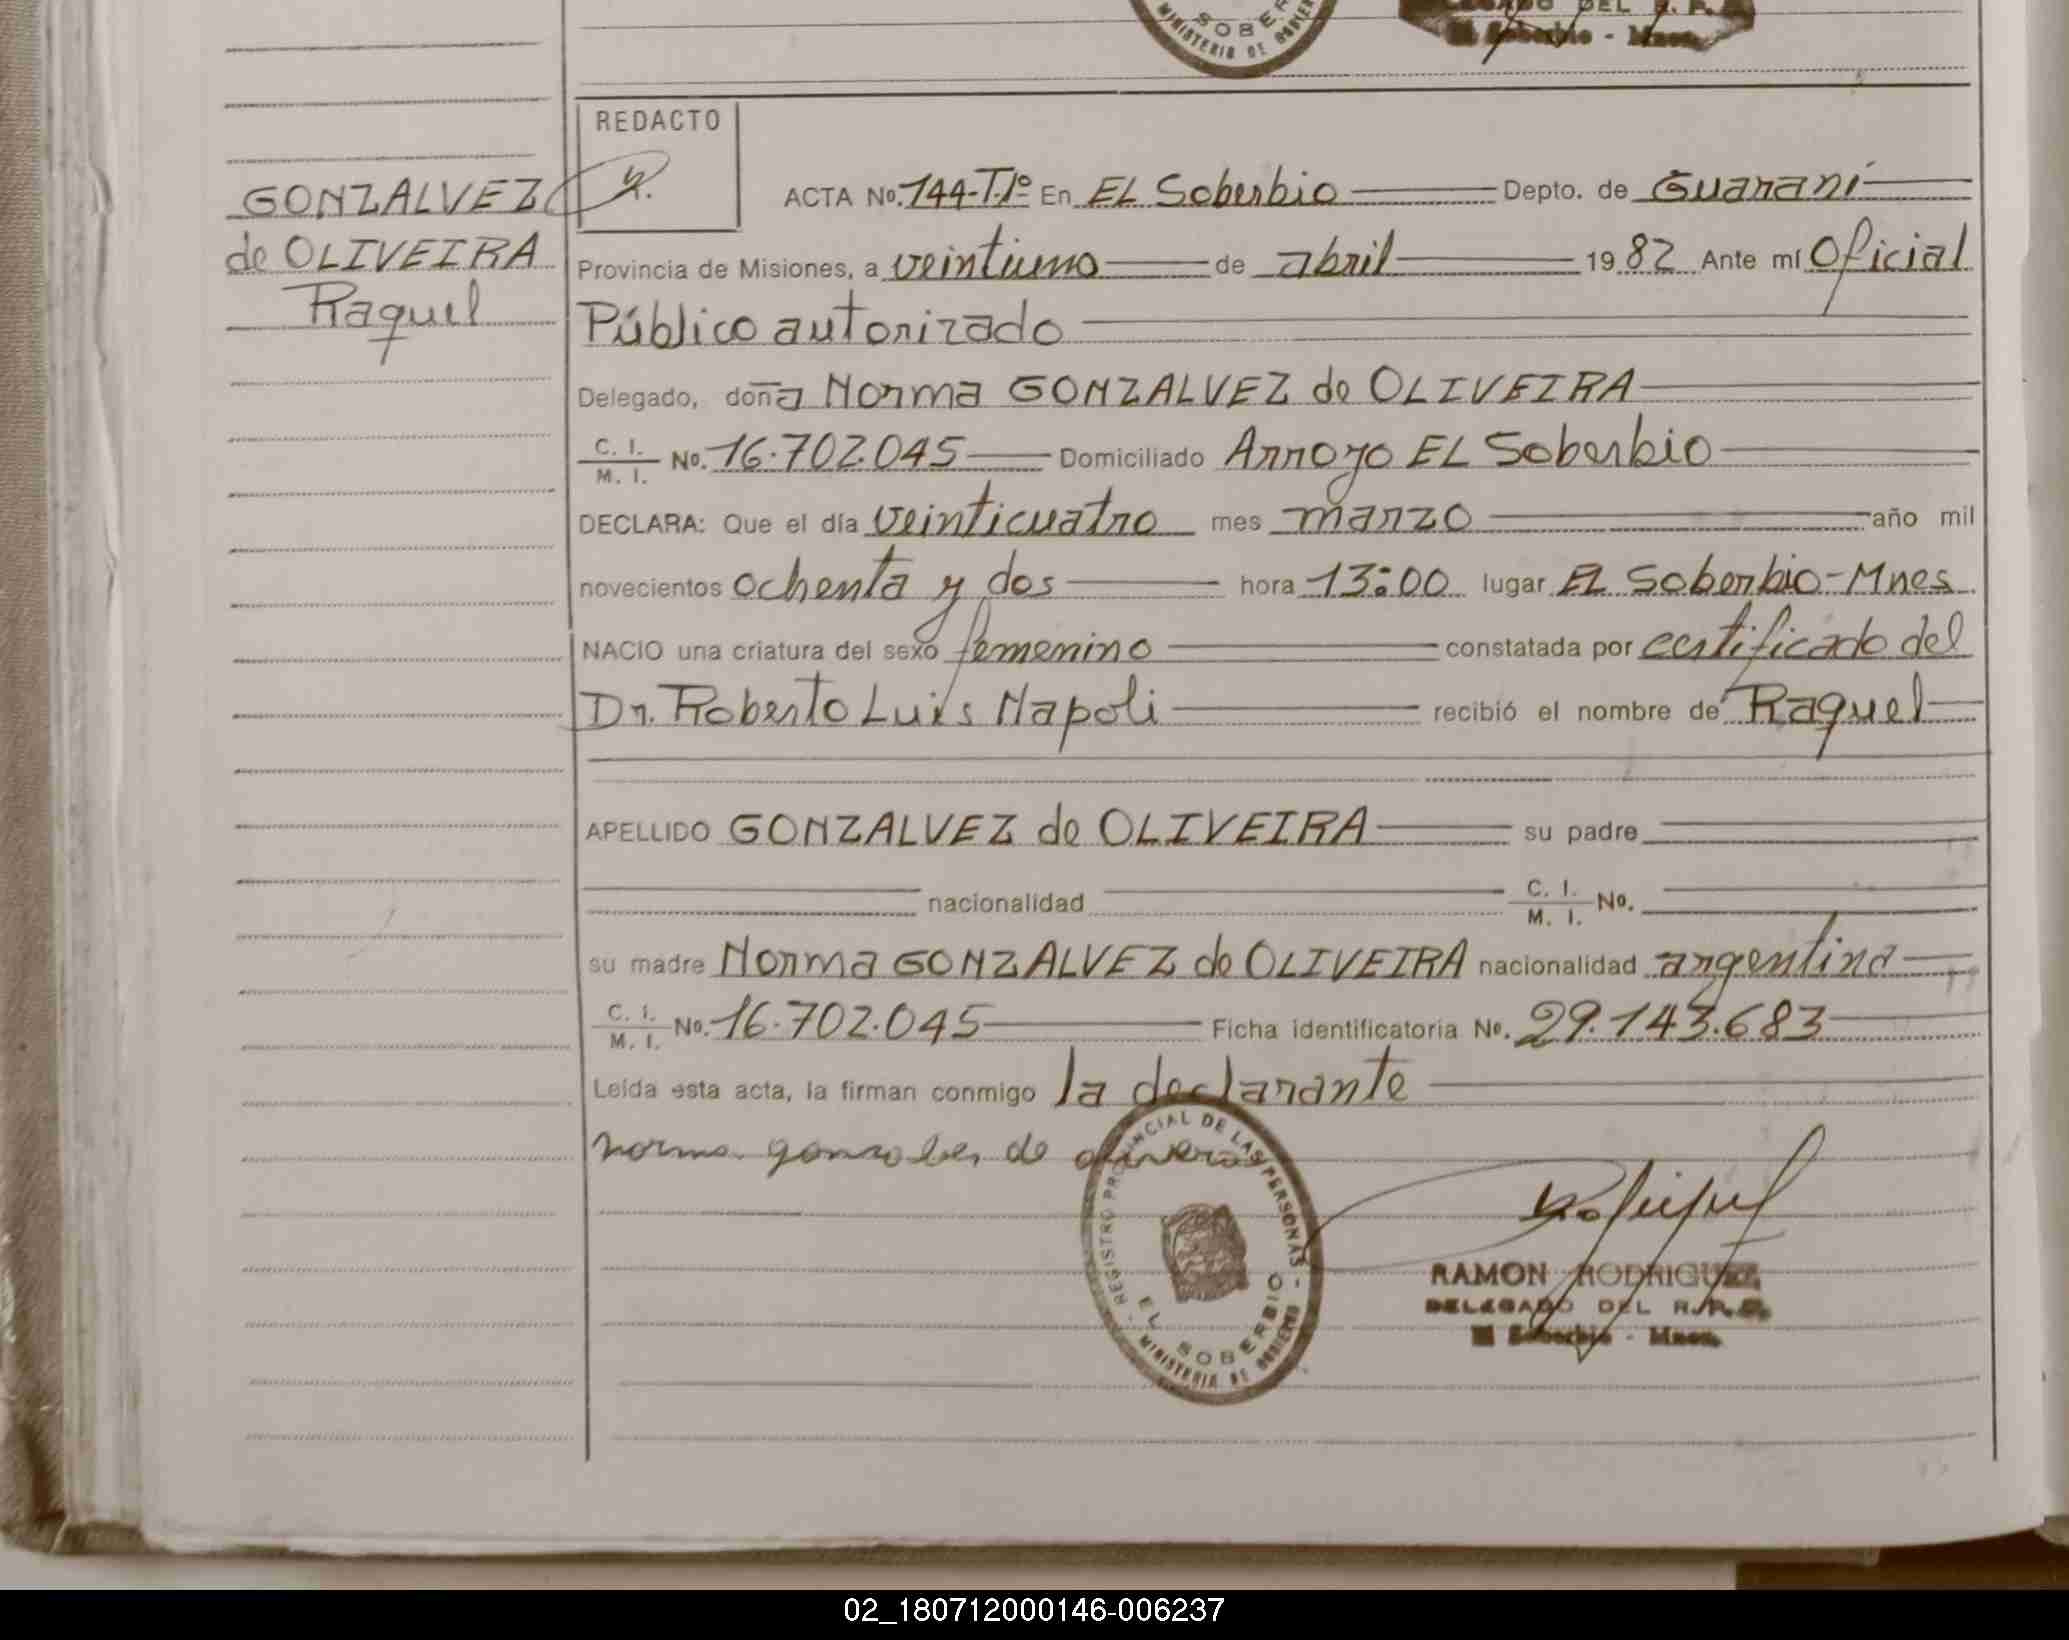 SOBER
MINISTERIO DE GOBIERNO
DELEGADO DEL R. P.
El Soberbio - Mnes.
REDACTO
GONZALVEZ
de OLIVEIRA
Raquel
ACTA No. 144-T.1º En EL Soberbio Depto. de Guaraní
Provincia de Misiones, a veintiuno de abril 1982 Ante mí Oficial
Público autorizado
Delegado, doña Norma GONZALVEZ de OLIVEIRA
C. I. / M. I. No. 16.702.045 Domiciliado Arroyo EL Soberbio
DECLARA: Que el día veinticuatro mes marzo año mil
novecientos ochenta y dos hora 13:00 lugar EL Soberbio-Mnes.
NACIO una criatura del sexo femenino constatada por certificado del
Dr. Roberto Luis Napoli recibió el nombre de Raquel
APELLIDO GONZALVEZ de OLIVEIRA su padre
nacionalidad C. I. / M. I. No.
su madre Norma GONZALVEZ de OLIVEIRA nacionalidad argentina
C. I. / M. I. No. 16.702.045 Ficha identificatoria No. 29.143.683
Leída esta acta, la firman conmigo la declarante
norma gonsalves de
REGISTRO PROVINCIAL DE LAS PERSONAS -
EL SOBERBIO
- MINISTERIO DE GOBIERNO -
RAMON RODRIGUEZ
DELEGADO DEL R. P.
El Soberbio - Mnes.
02_180712000146-006237